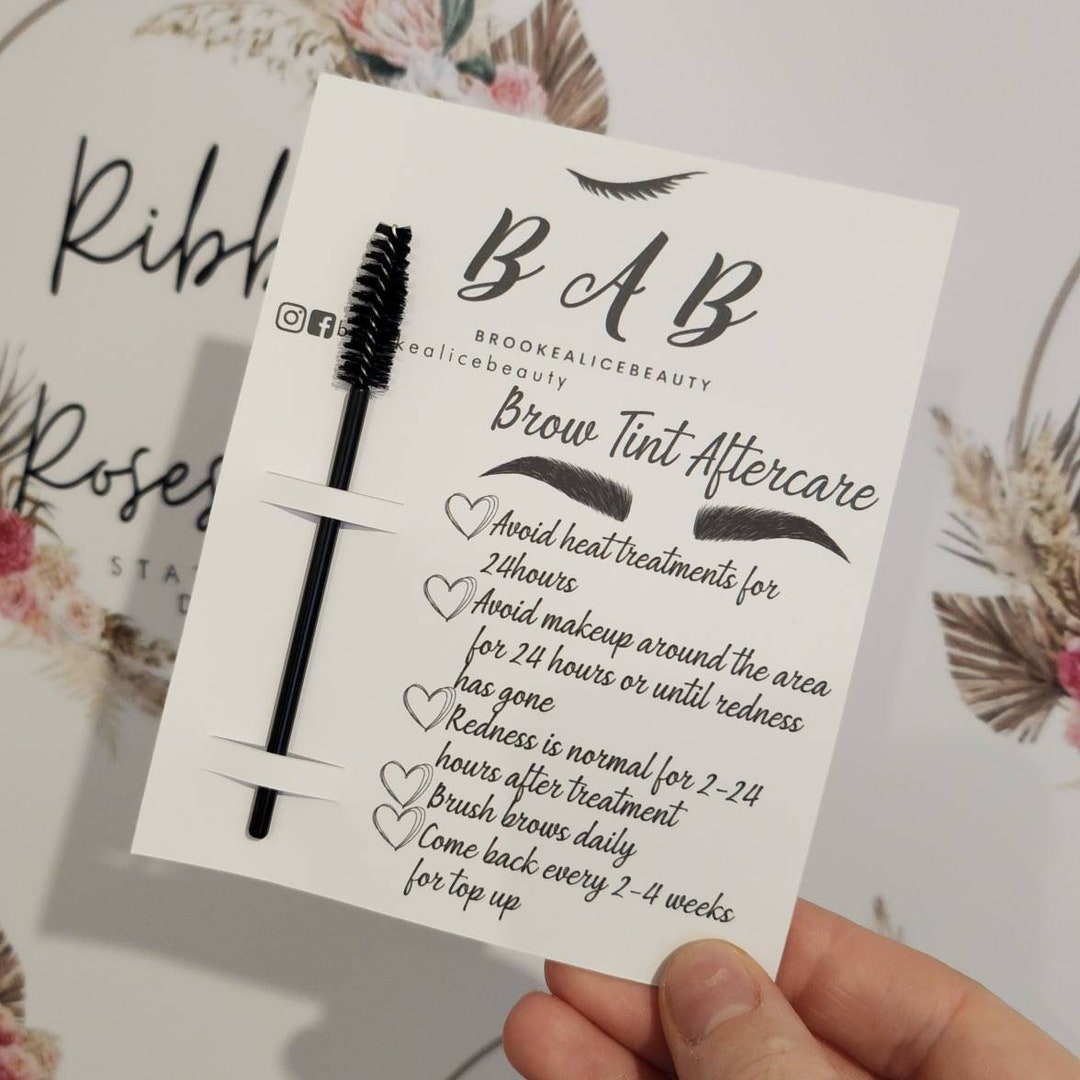 Roses
B A B
BROOKEALICEBEAUTY
Brow Tint Aftercare
Avoid heat treatments for
24hours
Avoid makeup around the area
for 24 hours or until redness
has gone
Redness is normal for 2-24
hours after treatment
Brush brows daily
Come back every 2-4 weeks
for top up